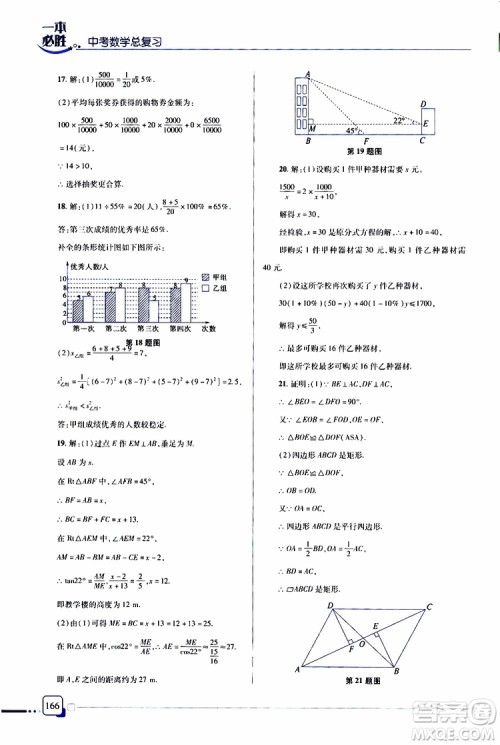 一本
必胜
中考数学总复习
17. 解：(1) 500/10000 或 5%.
(2)平均每张奖券获得的购物券金额为：
100×500/10000+50×1000/10000+20×2000/10000+0×6500/10000
=14(元).
∵ 14>10,
∴ 选择抽奖更合算.
18. 解：(1)11÷55%=20(人),(8+5)/20=65%.
答：第三次成绩的优秀率为 65%.
补全的条形统计图如下图所示：
优秀人数/人
甲组
乙组
第一次 第二次 第三次 第四次 次数
第 18 题图
(2)x乙组=(6+8+5+9)/4=7,
s²乙组=1/4[(6-7)²+(8-7)²+(5-7)²+(9-7)²]=2.5,
∴ s²甲组<s²乙组.
答：甲组成绩优秀的人数较稳定.
19. 解：(1)过点 E 作 EM⊥AB,垂足为 M.
设 AB 为 x.
在 Rt△ABF 中,∠AFB=45°,
∴ BF=AB=x,
∴ BC=BF+FC=x+13.
在 Rt△AEM 中,∠AEM=22°,
AM=AB-BM=AB-CE=x-2,
∴ tan22°=AM/ME,(x-2)/(x+13)=2/5,x=12.
即教学楼的高度为 12 m.
(2)由(1)可得 ME=BC=x+13=12+13=25.
在 Rt△AME 中,cos22°=ME/AE,∴ AE=ME/cos22°=25/(15/16)≈27.
即 A,E 之间的距离约为 27 m.
A
D
M
22°
E
45°
B
F
C
第 19 题图
20. 解：(1)设购买 1 件甲种器材需要 x 元.
1500/x=2×600/(x-10),
解得 x=30,
经检验,x=30 是原分式方程的解.
即购买 1 件甲种器材需要 30 元,购买 1 件乙种器材需要
40 元.
(2)设这所学校再次购买了 y 件乙种器材,
30(50-y)+40y≤1700.
解得 y≤50/3,
∴ 最多可购买 16 件乙种器材,
即这所学校最多可购买 16 件乙种器材.
21. 证明：(1)∵ BE⊥AC,DF⊥AC,
∴ ∠BEO=∠DFO=90°,
∴ △BOE≌△DOF(ASA).
(2)四边形 ABCD 是矩形.
∵ △BOE≌△DOF,
∴ OB=OD.
∵ OA=OC,
∴ 四边形 ABCD 是平行四边形.
∵ OA=1/2BD,OA=1/2AC,
∴ BD=AC,
∴ ▱ABCD 是矩形.
D
C
E
O
F
A
B
第 21 题图
166